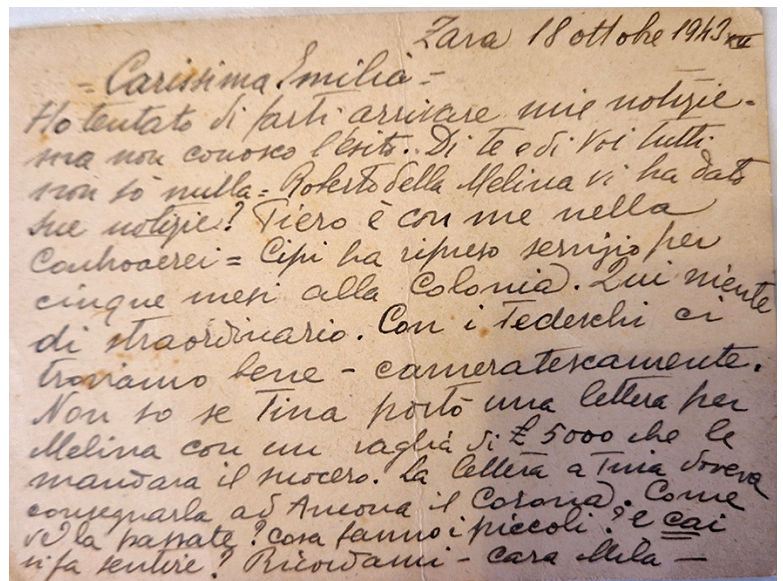 Zara 18 ottobre 1943 XXI
= Carissima Emilia =
Ho tentato di farti arrivare mie notizie =
ma non conosco l'esito. Di te e di Voi tutti
non so nulla = Roberto della Melina vi ha dato
sue notizie? Piero è con me nella
Controaerei = Cipi ha ripreso servizio per
cinque mesi alla Colonia. Qui niente
di straordinario. Con i Tedeschi ci
troviamo bene - cameratescamente.
Non so se Tina portò una lettera per
Melina con un vaglia di £ 5000 che le
mandava il suocero. La lettera a Tina doveva
consegnarla ad Ancona il Corona. Come
ve la passate? cosa fanno i piccoli? e
si fa sentire? Ricordami - cara Mila -